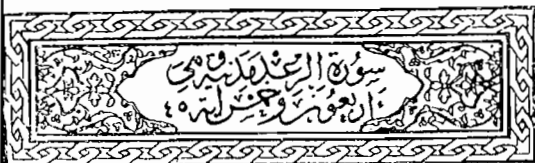 سورة الرعد مدنية وهي
اربعون وخمس اية